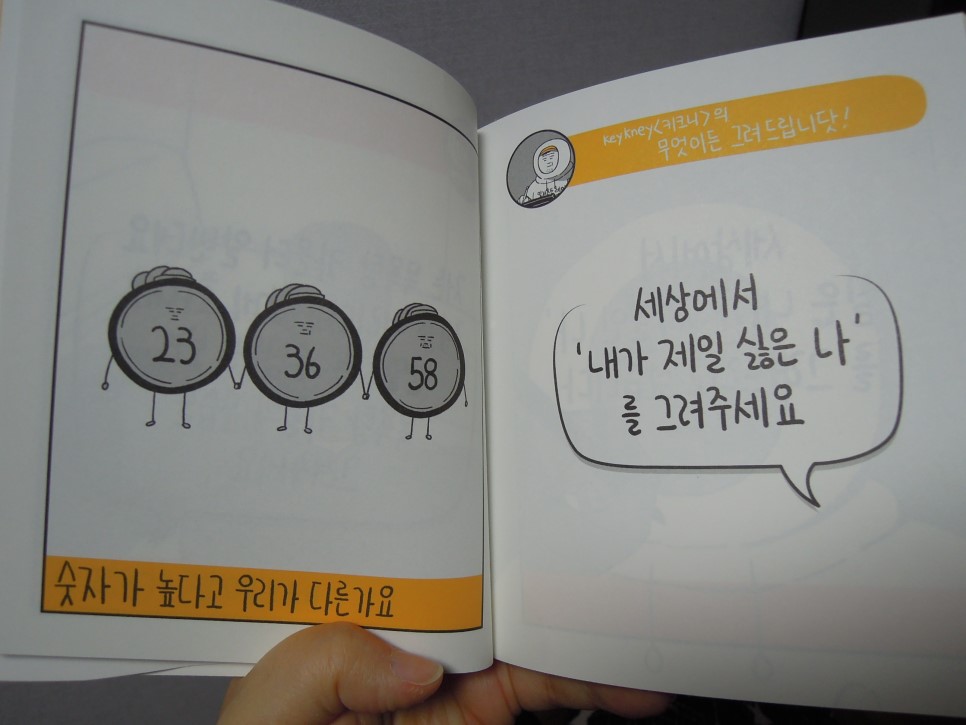 23
36
58
숫자가 높다고 우리가 다른가요
keykney<키크니>의
무엇이든 그려드립니닷!
세상에서
'내가 제일 싫은 나'
를 그려주세요